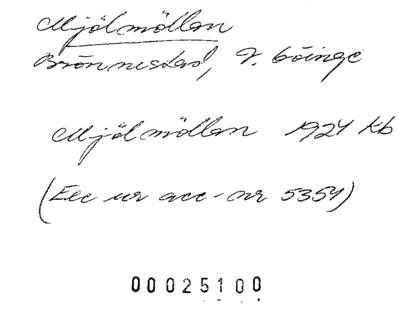 Mjölmöllan
Brönnestad, V. Göinge
Mjölmöllan 1924 kb
(Exc ur acc-nr 5354)
00025100